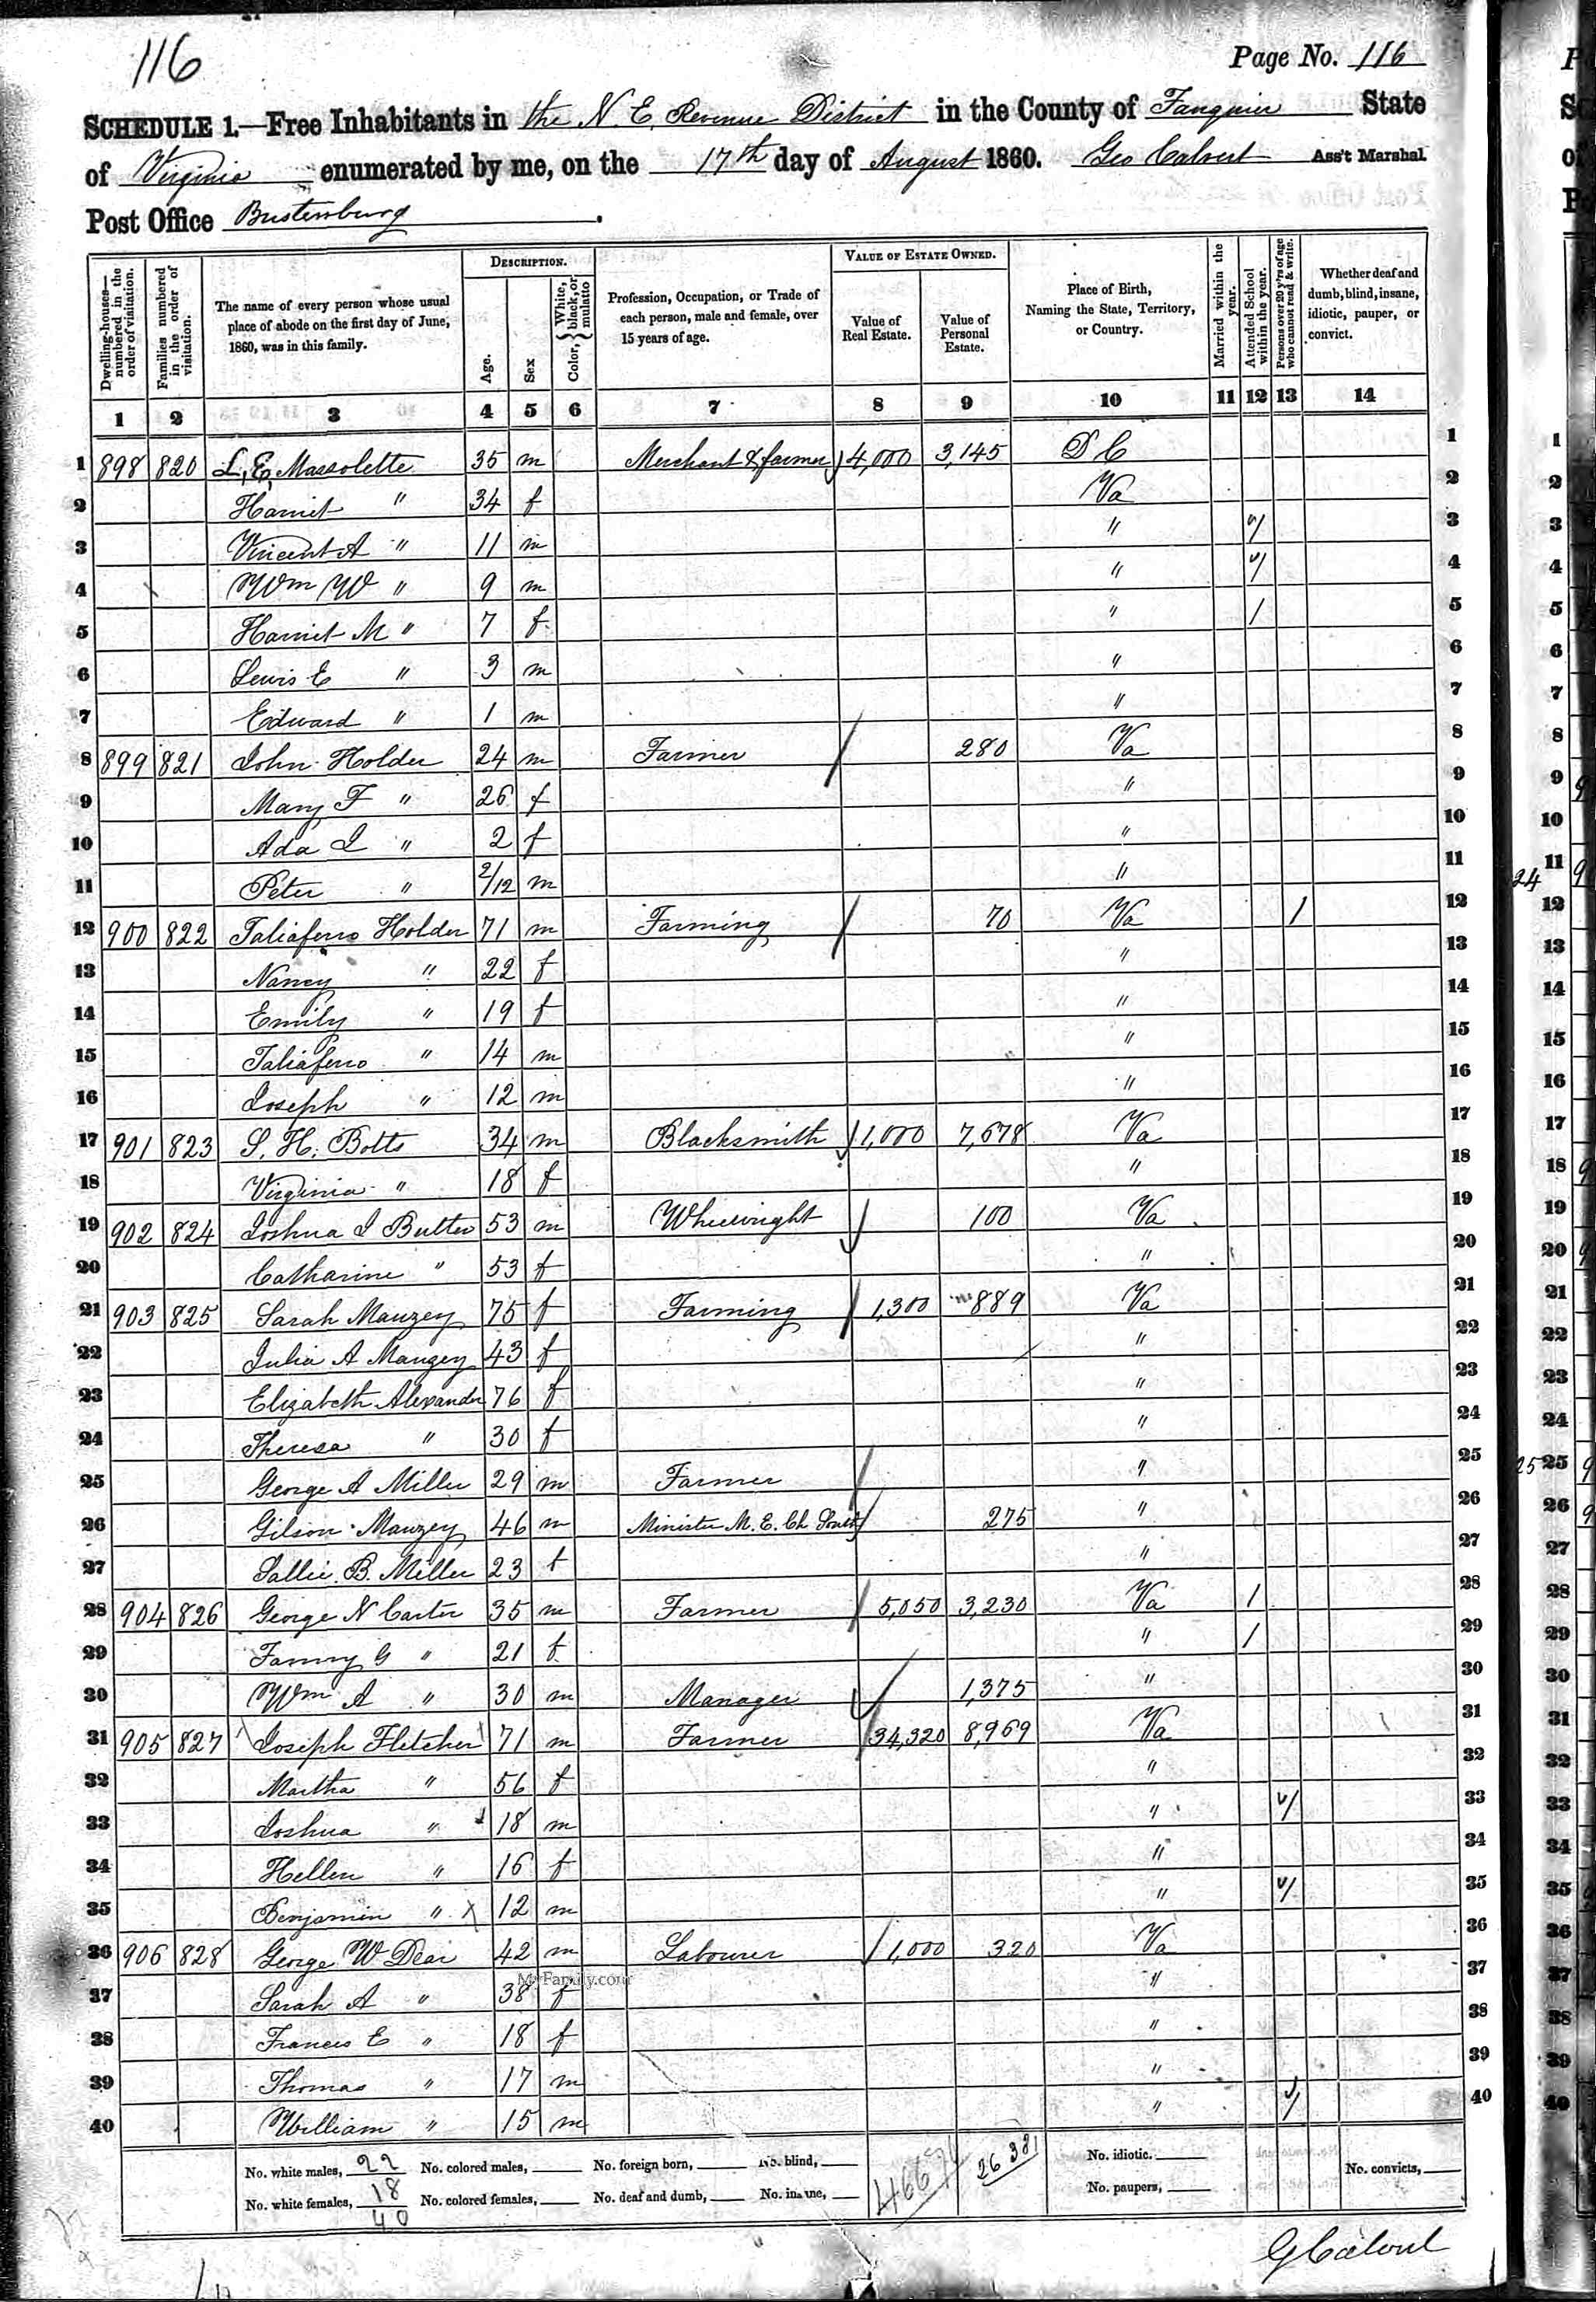 116
Page No. 116
SCHEDULE 1.—Free Inhabitants in the N. E. Revenue District in the County of Fauquier State
of Virginia enumerated by me, on the 17th day of August 1860. Geo Calvert Ass't Marshal
Post Office
Dwelling-houses—numbered in the order of visitation. Families numbered in the order of visitation. The name of every person whose usual place of abode on the first day of June, 1860, was in this family. DESCRIPTION. Age. Sex Color, { White, black, or mulatto Profession, Occupation, or Trade of each person, male and female, over 15 years of age. VALUE OF ESTATE OWNED. Value of Real Estate. Value of Personal Estate. Place of Birth, Naming the State, Territory, or Country. Married within the year. Attended School within the year. Persons over 20 y'rs of age who cannot read & write. Whether deaf and dumb, blind, insane, idiotic, pauper, or convict.
1 2 3 4 5 6 7 8 9 10 11 12 13 14
1 898 820 L, E, Massolette 35 m Merchant & farmer 4,000 3,145 D C 1
2 Harriet " 34 f Va 2
3 Vincent A " 11 m " / 3
4 Wm W " 9 m " / 4
5 Harriet M " 7 f " / 5
6 Lewis E " 3 m " 6
7 Edward " 1 m " 7
8 899 821 John Holder 24 m Farmer / 280 Va 8
9 Mary F " 26 f " 9
10 Ada I " 2 f " 10
11 Peter " 2/12 m " 11
12 900 822 Taliaferro Holder 71 m Farming / 70 Va / 12
13 Nancy " 22 f " 13
14 Emily " 19 f " 14
15 Taliaferro " 14 m " 15
16 Joseph " 12 m " 16
17 901 823 S. H. Botts 34 m Blacksmith / 1,000 7,678 Va 17
18 Virginia " 18 f " 18
19 902 824 Joshua I Butler 53 m Wheelwright / 100 Va 19
20 Catharine " 53 f " 20
21 903 825 Sarah Mauzey 75 f Farming / 1,300 889 Va 21
22 Julia A Mauzey 43 f " 22
23 Elizabeth Alexander 76 f " 23
24 Theresa " 30 f " 24
25 George A Miller 29 m Farmer / " 25
26 Gilson Mauzey 46 m Minister M. E. Ch South / 275 " 26
27 Sallie B. Miller 23 f " 27
28 904 826 George N Carter 35 m Farmer / 5,050 3,230 Va / 28
29 Fanny G " 21 f " / 29
30 Wm A " 30 m Manager / 1,375 " 30
31 905 827 Joseph Fletcher 71 m Farmer / 34,320 8,969 Va 31
32 Martha " 56 f " 32
33 Joshua " 18 m " / 33
34 Hellen " 16 f " 34
35 Benjamin " x 12 m " / 35
36 906 828 George W Dear 42 m Labourer / 1,000 320 Va 36
MyFamily.com
37 Sarah A " 38 f " 37
38 Frances E " 18 f " 38
39 Thomas " 17 m " 39
40 William " 15 m " / 40
No. white males, 22 No. colored males, No. foreign born, No. blind, 26381 No. idiotic. No. convicts,
No. white females, 18 No. colored females, No. deaf and dumb, No. insane, No. paupers,
40
G Calvert